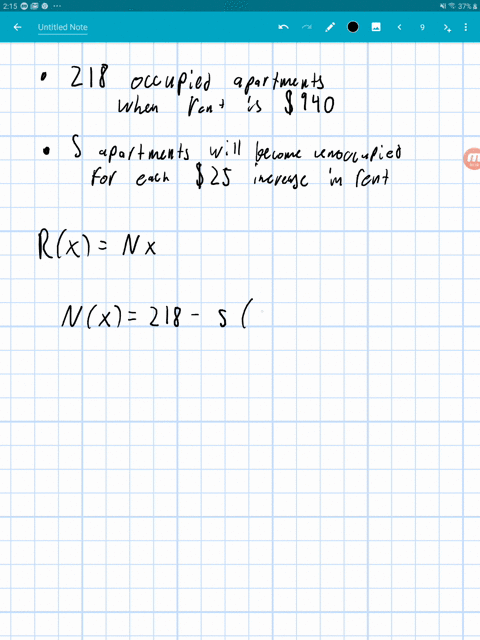 2:15
37%
Untitled Note
9
• 218 occupied apartments
when rent is $940
• 5 apartments will become unoccupied
for each $25 increase in rent
R(x) = Nx
N(x) = 218 - 5 (